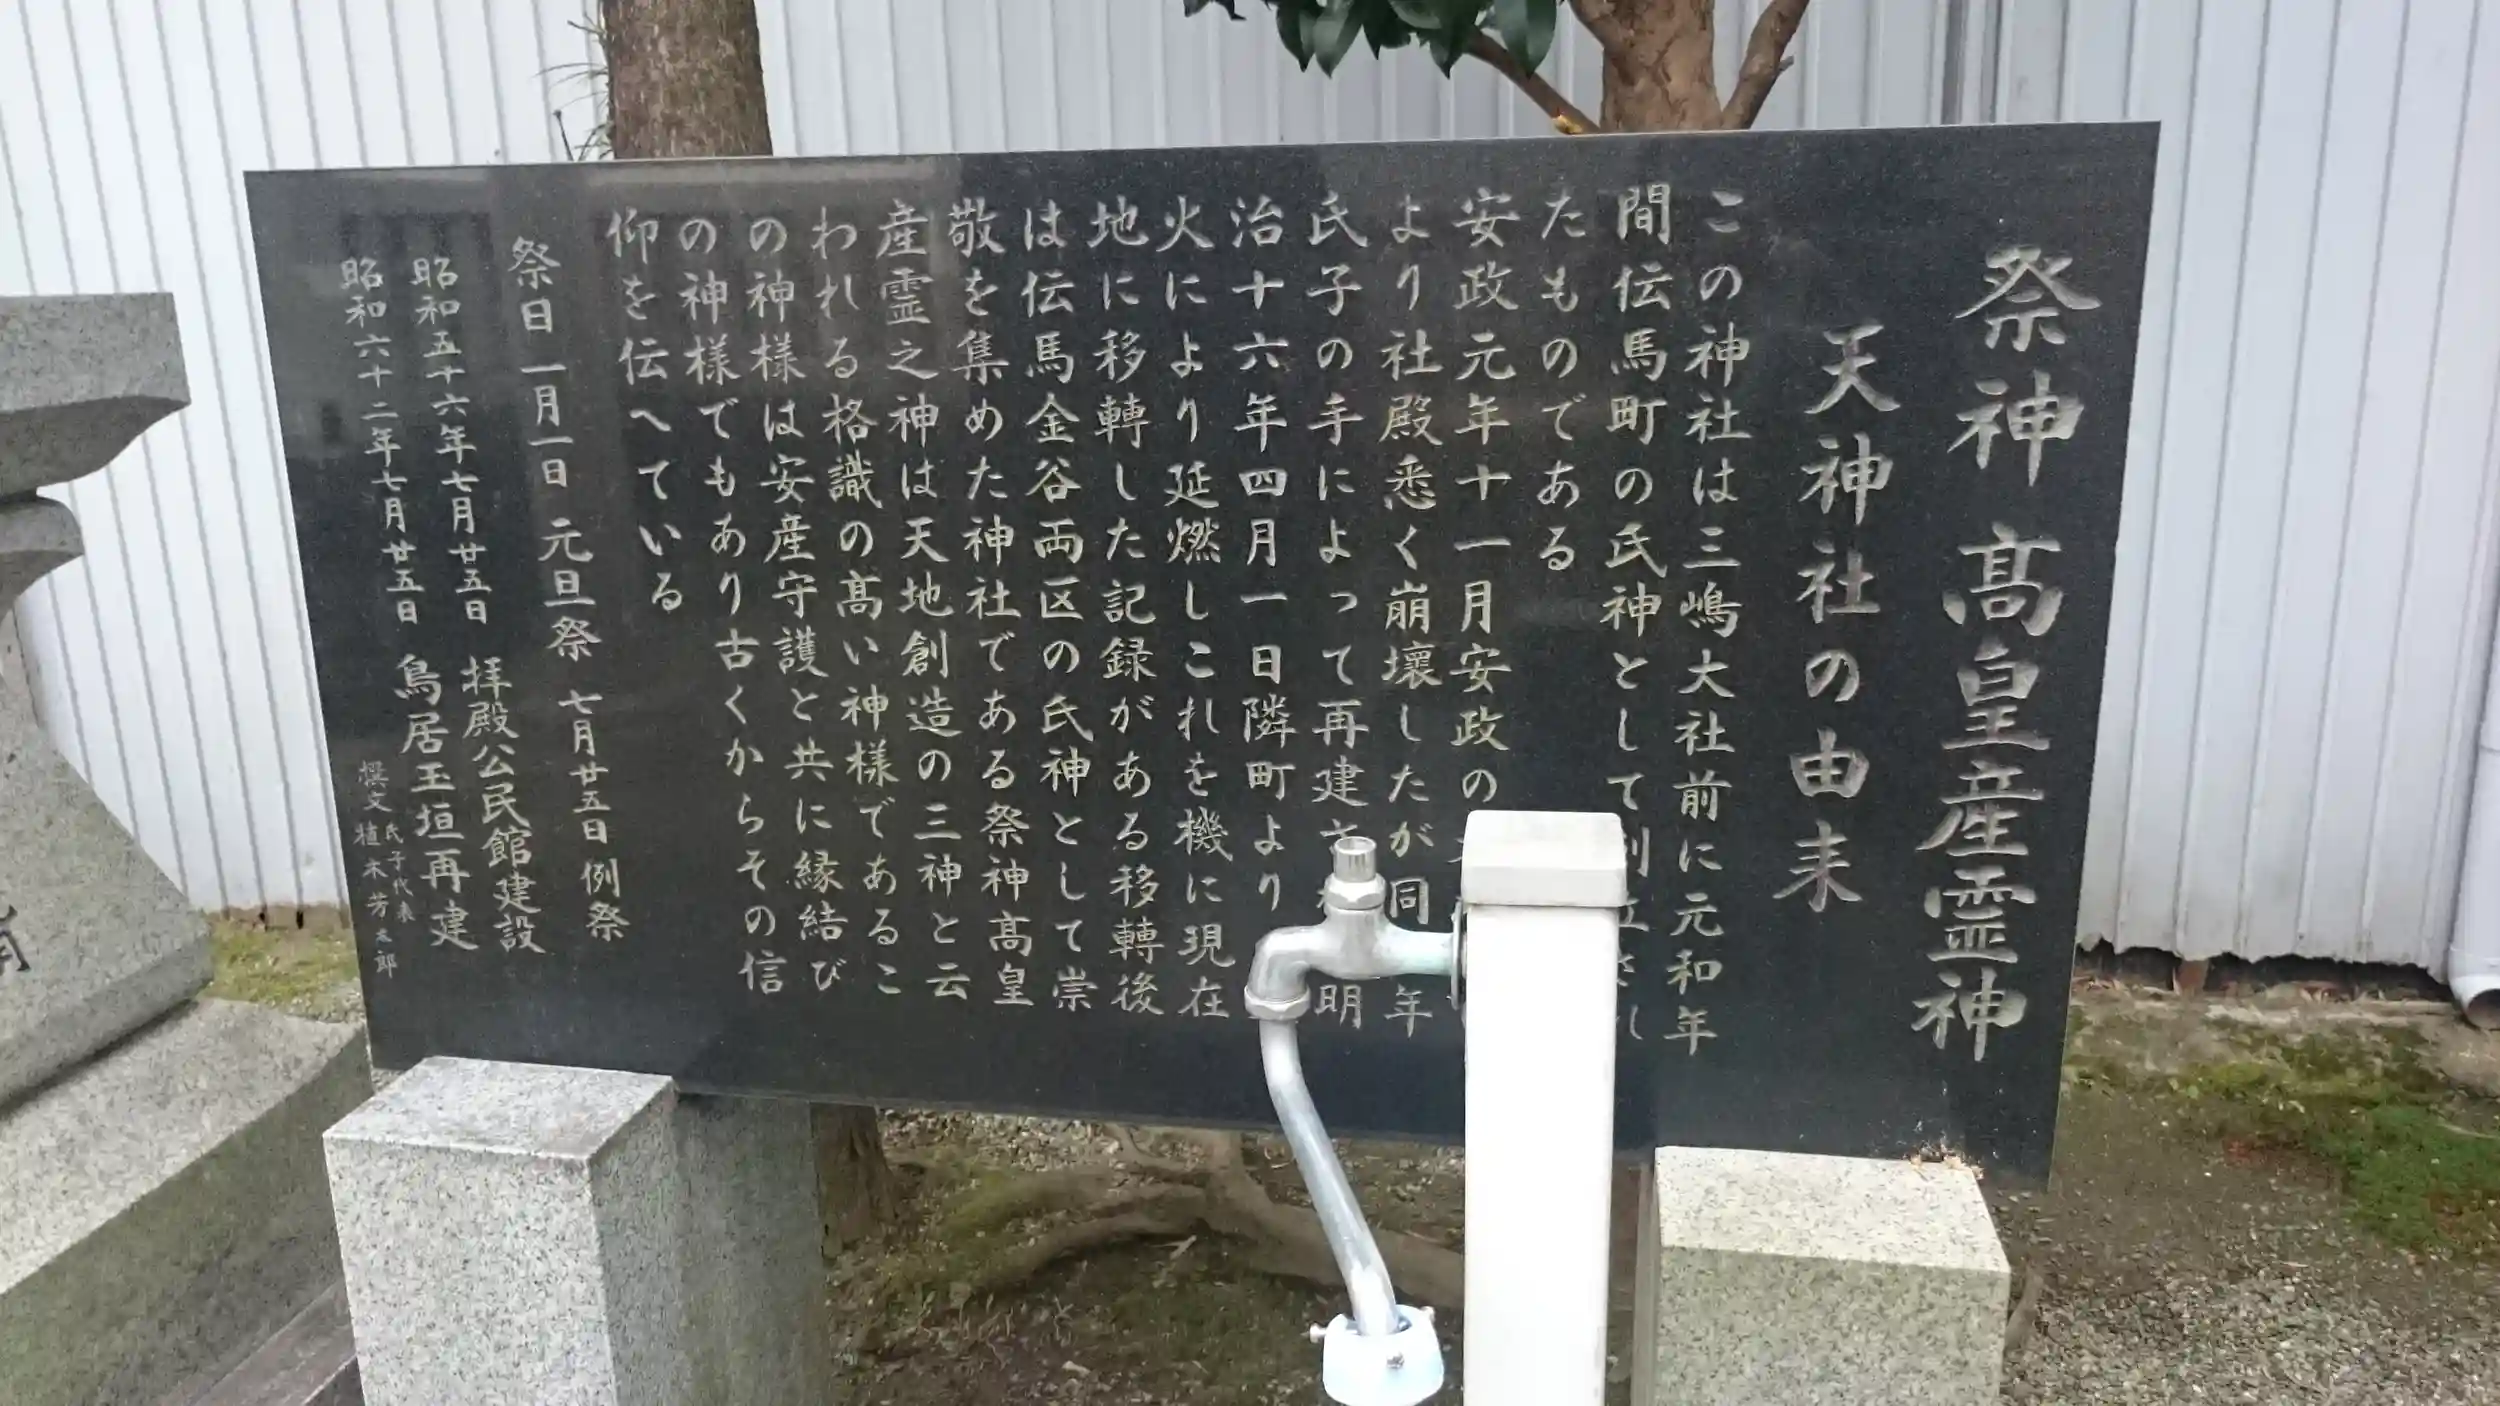 祭神 髙皇産霊神
天神社の由来
この神社は三嶋大社前に元和年
間伝馬町の氏神として創立され
たものである
安政元年十一月安政の
より社殿悉く崩壊したが同年
氏子の手によって再建 明
治十六年四月一日隣町より
火により延燃しこれを機に現在
地に移轉した記録がある移轉後
は伝馬金谷両区の氏神として崇
敬を集めた神社である祭神髙皇
産霊之神は天地創造の三神と云
われる格識の髙い神様であるこ
の神様は安産守護と共に縁結び
の神様でもあり古くからその信
仰を伝へている
祭日 一月一日 元旦祭 七月廿五日例祭
昭和五十六年七月廿五日 拝殿公民館建設
昭和六十二年七月廿五日 鳥居玉垣再建
氏子代表
撰文 植木芳太郎